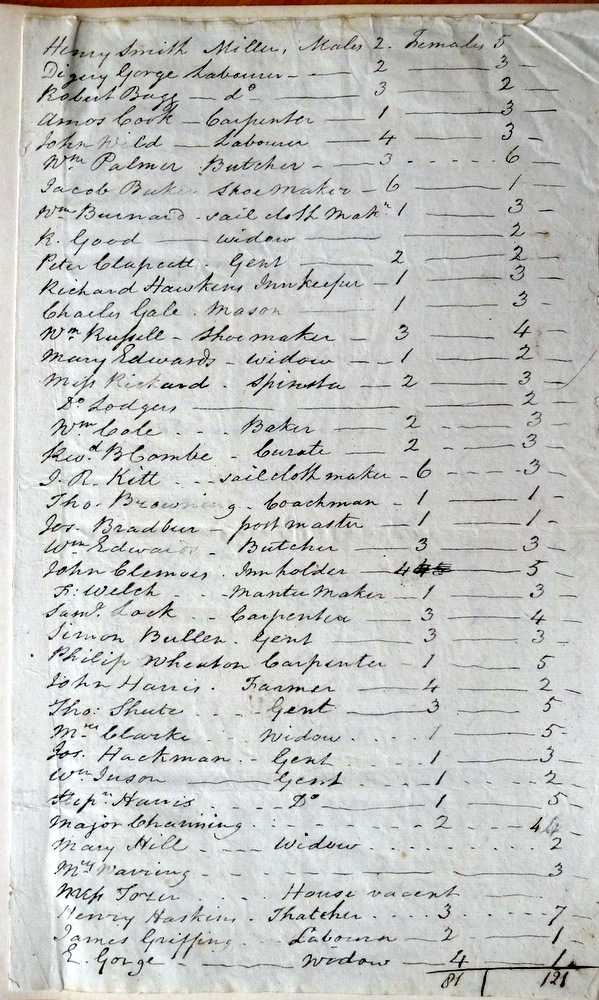 Henry Smith Miller, Males 2. Females 5
Digery Gorge Labourer - 2 - 3 -
Robert Bagg - do - 3 - 2 -
Amos Cook - Carpenter - 1 - 3 -
John Wild - Labourer - 4 - 3 -
Wm Palmer Butcher - 3 - - - - - 6 -
Jacob Baker Shoemaker - 6 - 1 -
Wm Burnard - sail cloth Makr 1 - 3 -
R. Good - widow - 2 -
Peter Clapcott - Gent - 2 - 2 -
Richard Hawkins Innkeeper - 1 - 3 -
Charles Gale - Mason - 1 - 3 -
Wm Russell - Shoemaker - 3 - 4 -
Mary Edwards - widow - 1 - 2 -
Miss Rickard - Spinster - 2 - 3 -
Do Lodgers - 2 -
Wm Cole - - - Baker - 2 - 3 -
Revd B Combe - Curate - 2 - 3 -
J. R. Kitt - - sail cloth maker - 6 - - - 3 -
Tho. Browning - Coachman - 1 - 1 -
Jos. Bradbur - post master - 1 - 1 -
Wm Edwards - Butcher - 3 - 3 -
John Clemoes - Innholder - 4 - 5 -
Welch - - Mantu Maker - 1 - 3 -
Saml Lock - Carpenter - 3 - 4 -
Simon Bullen - Gent - 3 - 3 -
Philip Wheaton Carpenter - 1 - 5
John Harris - Farmer - 4 - 2 -
Tho: Shute - - - Gent - 3 - 5
Mrs Clarke - Widow - 1 - 5 -
Jos. Hackman - Gent - 1 - 3 -
Wm - Gent - 1 - 2
Harris - - - Do - 1 - 5
Major Channing - - - - 2 - 4
Mary Hill - - Widow - - - - 2
Mrs Warring - - - 3
Miss Tozer - - House vacent -
Henry Haskins - Thatcher - - 3 - - - 7
James Griffing - Labourer - 2 - 1 -
E. Gorge - Widow - 4 - 1
81 121